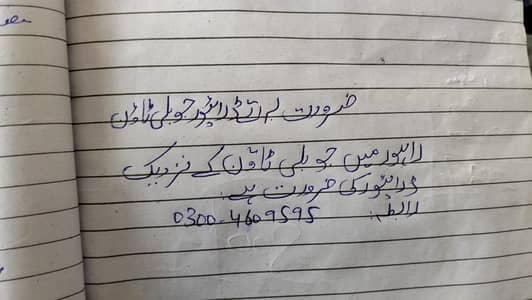 ضرورت برائے ڈرائیور جوبلی ٹاؤن
لاہور میں جوبلی ٹاؤن کے نزدیک
ڈرائیور کی ضرورت ہے۔
رابطہ: 0300-4609595